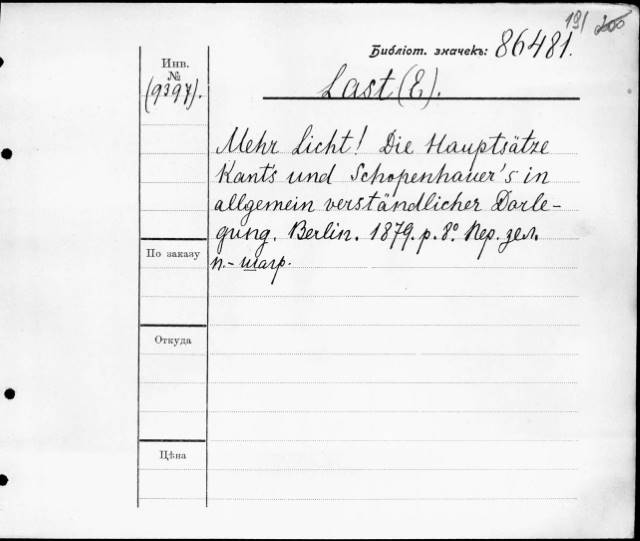 191 200
Библіот. значекъ: 86481.
Инв.
№
(9397).
Last (E).
Mehr Licht! Die Hauptsätze
Kant's und Schopenhauer's in
allgemein verständlicher Darle-
gung. Berlin. 1879. p. 8º. Пер. зел.
п.- шагр.
По заказу
Откуда
Цѣна